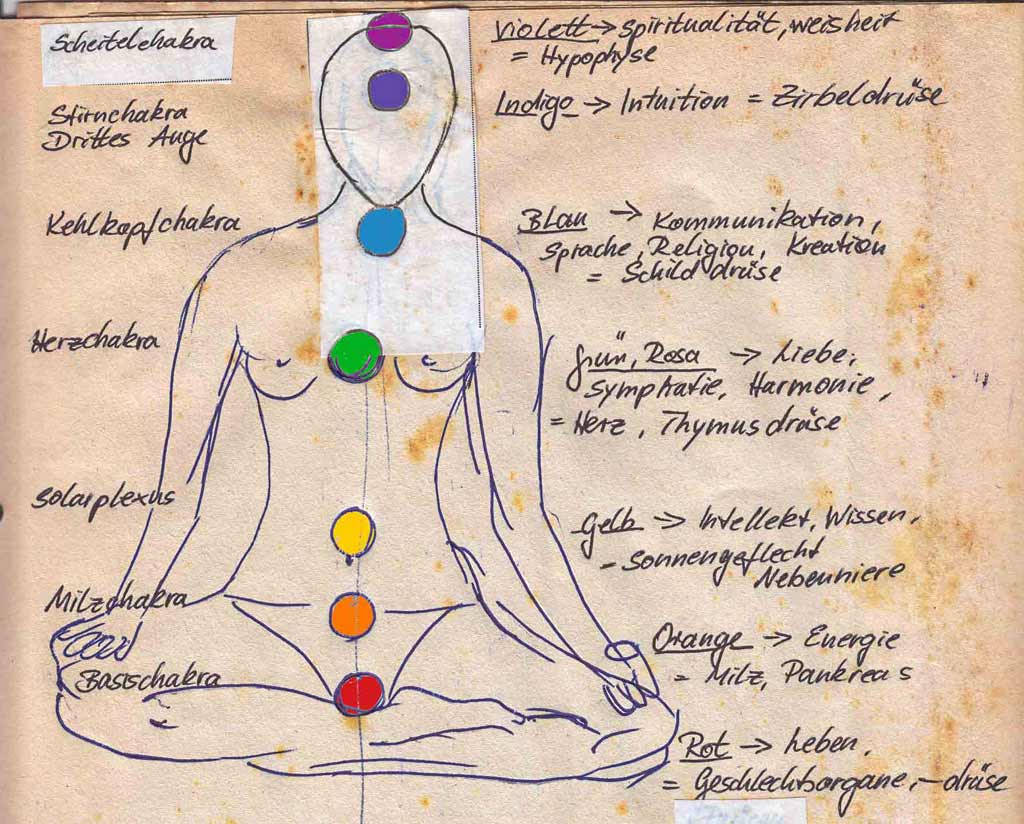 Scheitelchakra
Violett → Spiritualität, weisheit
= Hypophyse
Stirnchakra
Drittes Auge
Indigo → Intuition = Zirbeldrüse
Kehlkopfchakra
Blau → Kommunikation,
Sprache, Religion, Kreation
= Schilddrüse
Herzchakra
Grün, Rosa → Liebe,
Symphatie, Harmonie,
= Herz, Thymusdrüse
Solarplexus
Gelb → Intellekt, Wissen,
- Sonnengeflecht
Nebenniere
Milzchakra
Orange → Energie
= Milz, Pankreas
Basischakra
Rot → Leben,
= Geschlechtsorgane, -drüse